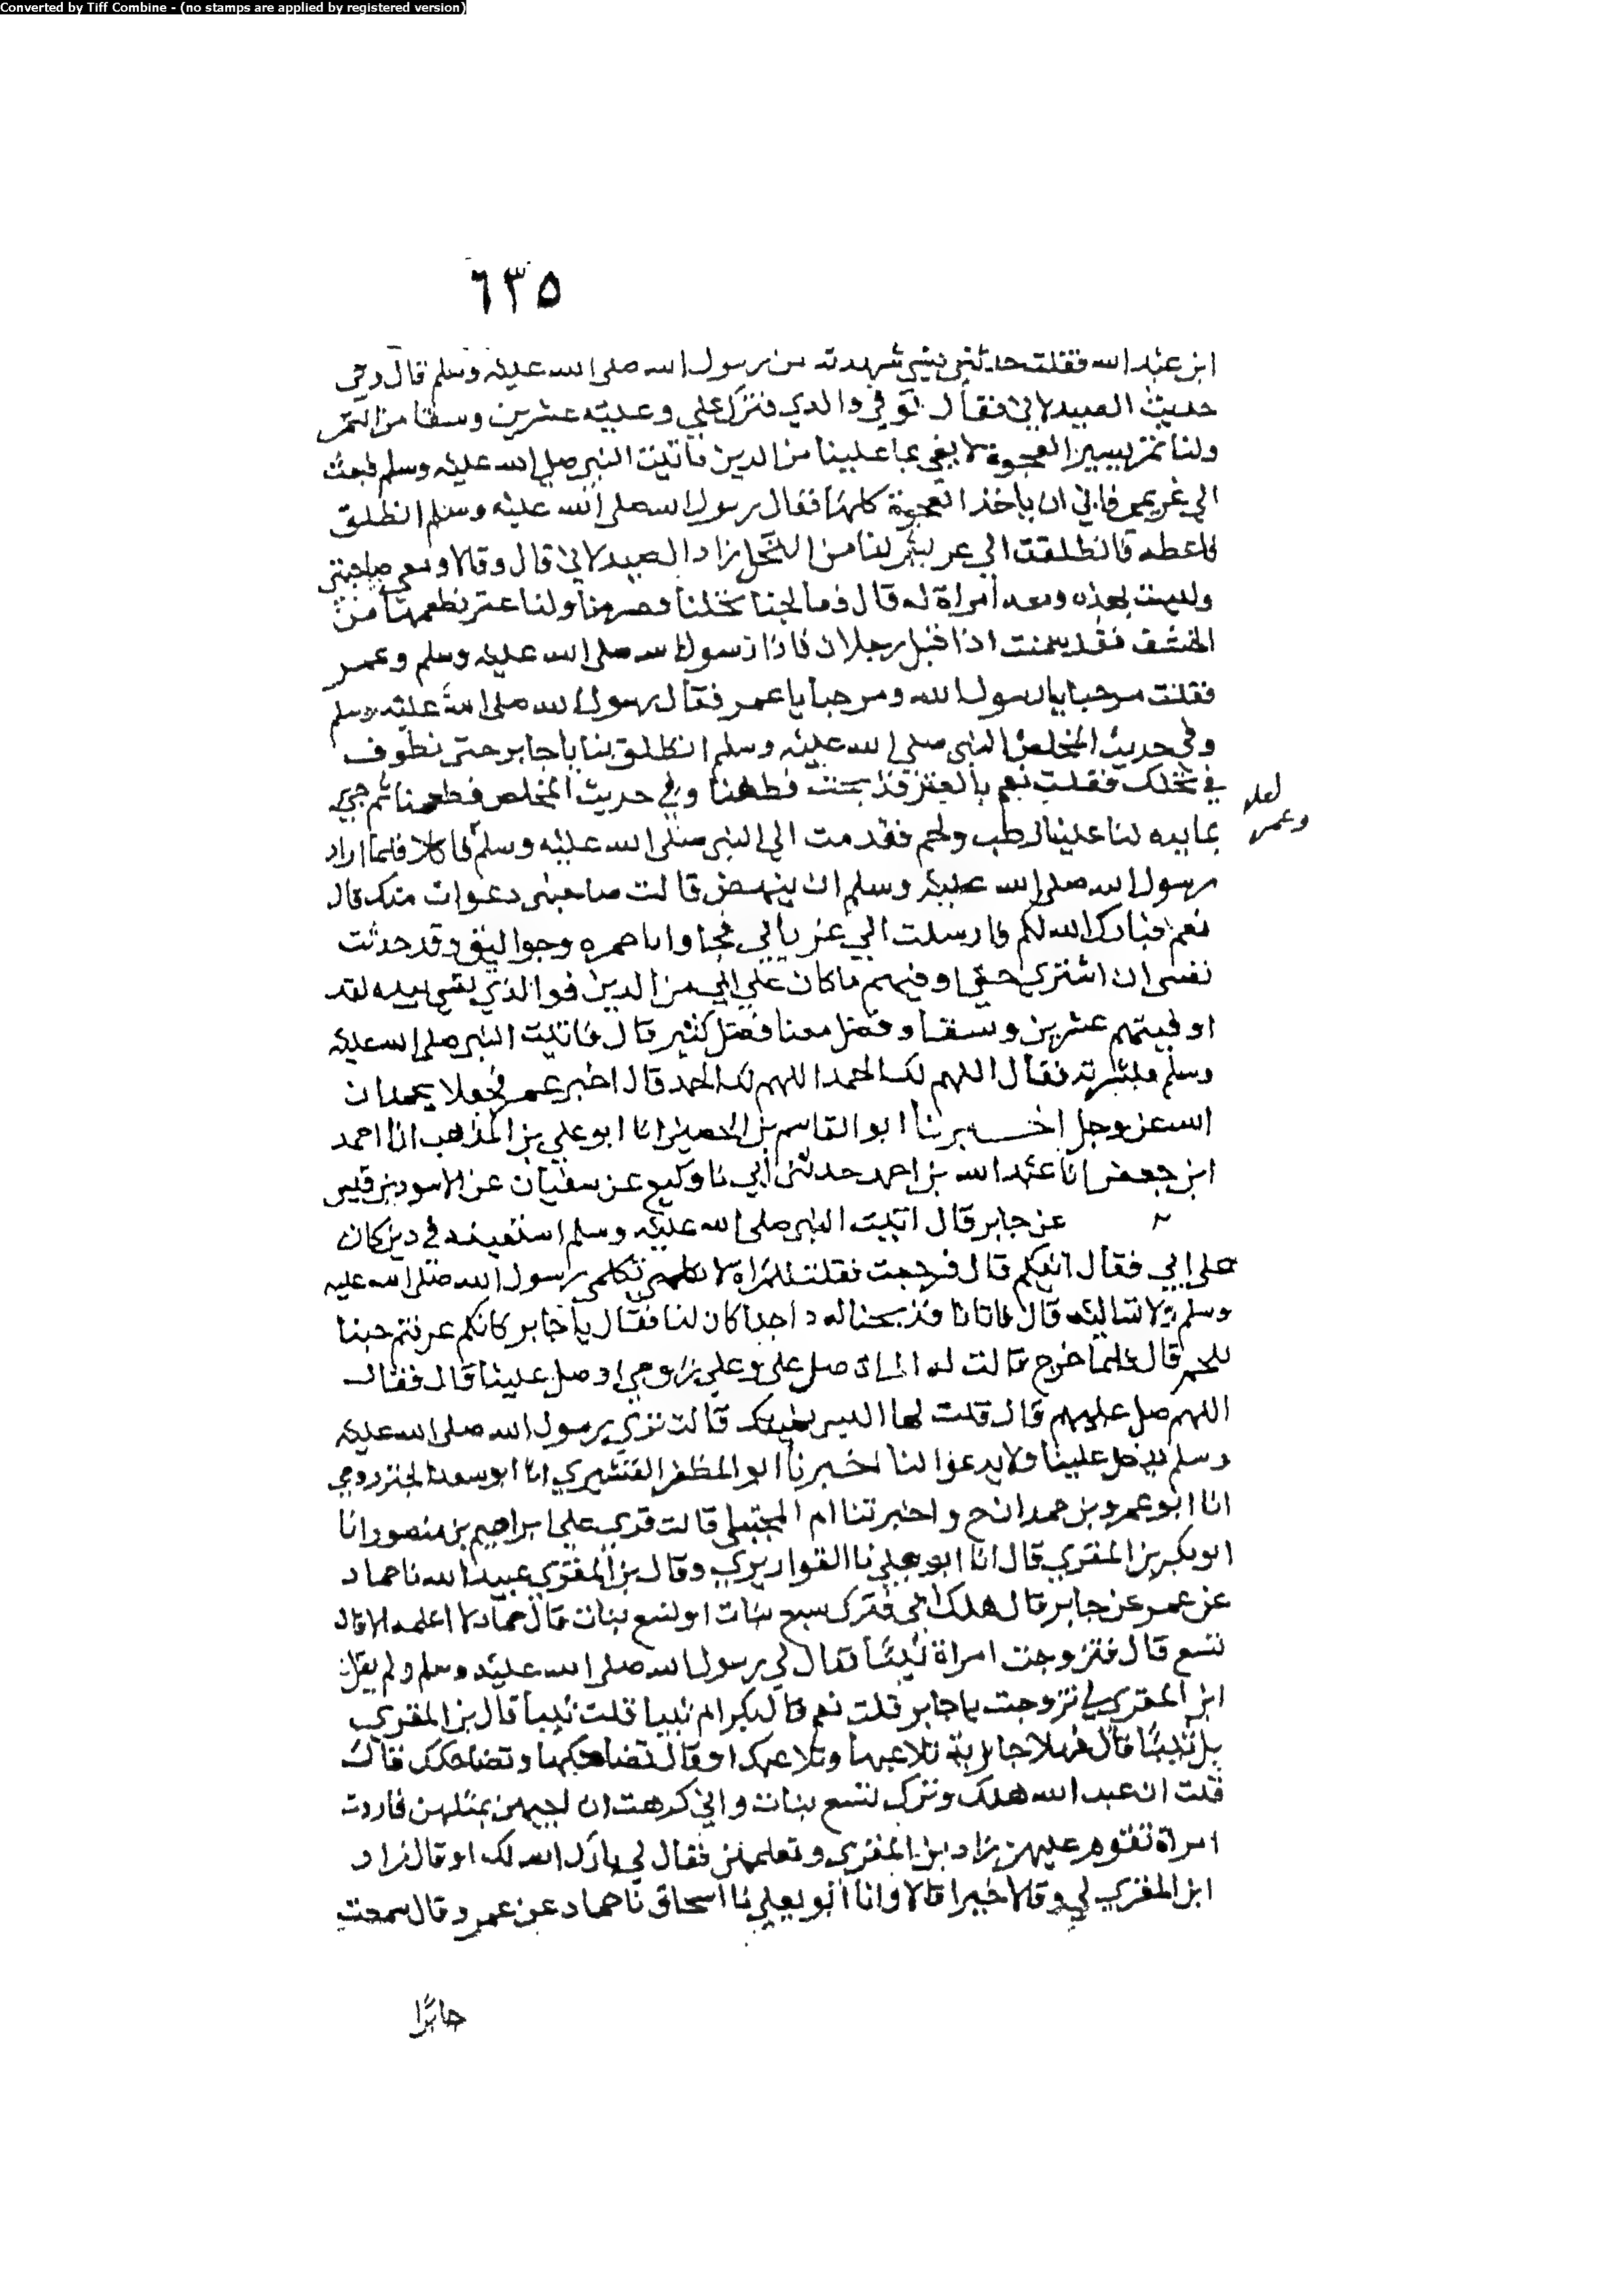 Converted by Tiff Combine - (no stamps are applied by registered version)
٦٣٥
ابن عبد الله فقلت حدثني بشي شهدته من رسول الله صلى الله عليه وسلم قال وفي
حديث الصيدلاني فقال توفي والدي فترك علي وعليه عشرين وسقا من التمر
ولنا تمر يسير العجوة لا يفي بما علينا من الدين فاتيت النبي صلى الله عليه وسلم فبعث
الي غريمي فابي ان ياخذ العجوة كلها فقال رسول الله صلى الله عليه وسلم انطلق
فاعطه فانطلقت الي عريش لنا من النخل زاد الصيدلاني قال وقالا ومعي صاحبتي
وليست هذه ومعه امراة له قال فعالجنا نخلنا فصرمنا ولنا عنز نطعمها من
الحشف فقد سمنت اذا اقبل رجلان فاذا رسول الله صلى الله عليه وسلم وعمر
فقلت مرحبا يا رسول الله ومرحبا يا عمر فقال رسول الله صلى الله عليه وسلم
وفي حديث المخلص النبي صلى الله عليه وسلم انطلق بنا يا جابر حتى نطوف
في نخلك فقلت نعم بالعنز فذبحت فطفنا وفي حديث المخلص فطعمنا ثم جي
لعله
وعمر
لنا علينا لرطب ولحم فقدمت الي النبي صلى الله عليه وسلم فاكلا فلما اراد
رسول الله صلى الله عليه وسلم ان ينهض قالت صاحبتي دعوات منك قال
نعم فبارك الله لكم فارسلت الي غرمايي فجاوا باحمره وجواليق وقد حدثت
نفسي ان اشتري حتى اوفيهم ما كان علي ابي من الدين فوالذي نفسي بيده لقد
اوفيتهم عشرين وسقا وفضل معنا فضل كثير قال فاتيت النبي صلى الله عليه
وسلم فبشرته فقال اللهم لك الحمد اللهم لك الحمد قال اخبر عمر فجعلا يحمدان
الله عز وجل اخبرنا ابو القاسم بن الحصين انا ابو علي بن المذهب انا احمد
ابن جعفر انا عبد الله بن احمد حدثني ابي نا وكيع عن سفيان عن الاسود بن قيس
عن جابر قال اتيت النبي صلى الله عليه وسلم استعينه في دين كان
على ابي فقال اتيكم قال فرجعت فقلت للمراة لا تكلمي رسول الله صلى الله عليه
وسلم ولا تساليه قال فاتانا فذبحنا له داجنا كان لنا فقال يا جابر كانكم عرفتم حبنا
للحم قال فلما خرج قالت له المراة صل علي وعلي زوجي او صل علينا قال فقال
اللهم صل عليهم قال قلت لها اليس نهيتك قالت تري رسول الله صلى الله عليه
وسلم يدخل علينا ولا يدعوا لنا اخبرنا ابو المظفر القشيري انا ابو سعد الجنزرودي
انا ابو عمرو بن حمدان ح واخبرتنا ام المجتبى قالت قري علي ابراهيم بن منصور انا
ابو بكر بن المقري قال انا ابو يعلي نا القواريري وقال بن المقري عبيد الله نا حماد
عن عمرو عن جابر قال هلك ابي فترك سبع بنات او تسع بنات قال حماد لا اعلمه الا قال
تسع قال فتزوجت امراة ثيبا فقال لي رسول الله صلى الله عليه وسلم ولم يقل
ابن المقري لي تزوجت يا جابر قلت نعم قال بكرا ام ثيبا قلت ثيبا قال بن المقري
بل ثيبا قال فهلا جارية تلاعبها وتلاعبك او قال تضاحكها وتضاحكك قال
قلت ان عبد الله هلك وترك تسع بنات واني كرهت ان اجيهن بمثلهن فاردت
امراة تقوم عليهن زاد بن المقري وتعلمهن فقال لي بارك الله لك او قال زاد
ابن المقري لي وقالا خيرا قالا وانا ابو يعلي نا اسحاق نا حماد عن عمرو قال سمعت
جابرا